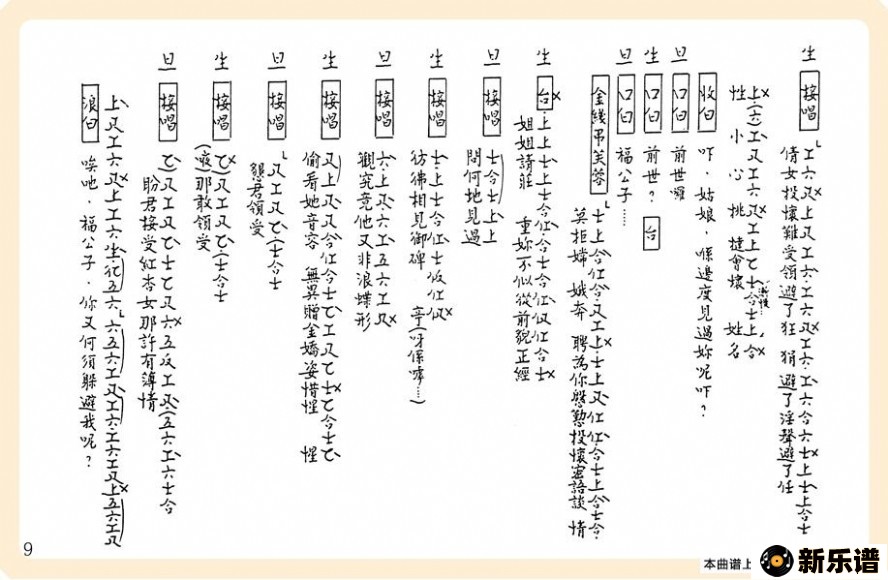 生 接唱
工六尺上尺工六工六尺工六工六合六士上士上合士
倩女投懷難受領避了狂 狷 避了淫聲避了任
上(六)工尺工六尺工上乙士合士上合
性 小 心 挑 撻會壞 姓 名
收白 吓，姑娘，係邊度見過妳呢吓？
旦 口白 前世囉
生 口白 前世？ 台
旦 口白 福公子……
金綫吊芙蓉
莫拒嫦 娥奔 聘為你慇懃投懷蜜語談 情
生 台
上上士上士合仜合士合仜伬仜合士
姐姐請莊 重妳不似從前貌正經
旦 接唱 士合士上上
問何地見過
生 接唱 士上士合仜士伬仜伬
彷彿相見御碑 亭(呀係嘑……)
旦 接唱 六上尺六工尺五六工尺
觀究竟他又非浪蝶形
生 接唱
偷看她音容 無異贈金嬌姿惜惺 惺
旦 接唱 尺工尺乙(士合士
懇君領受
生 接唱 乙)尺工尺乙(士合士
那敢領受
旦 接唱 乙)尺工尺乙士乙尺六五反工尺(五六工六士合
盼君接受紅杏女那許有薄情
浪白 唉吔，福公子，你又何須躲避我呢？
9
本曲谱上
新乐谱